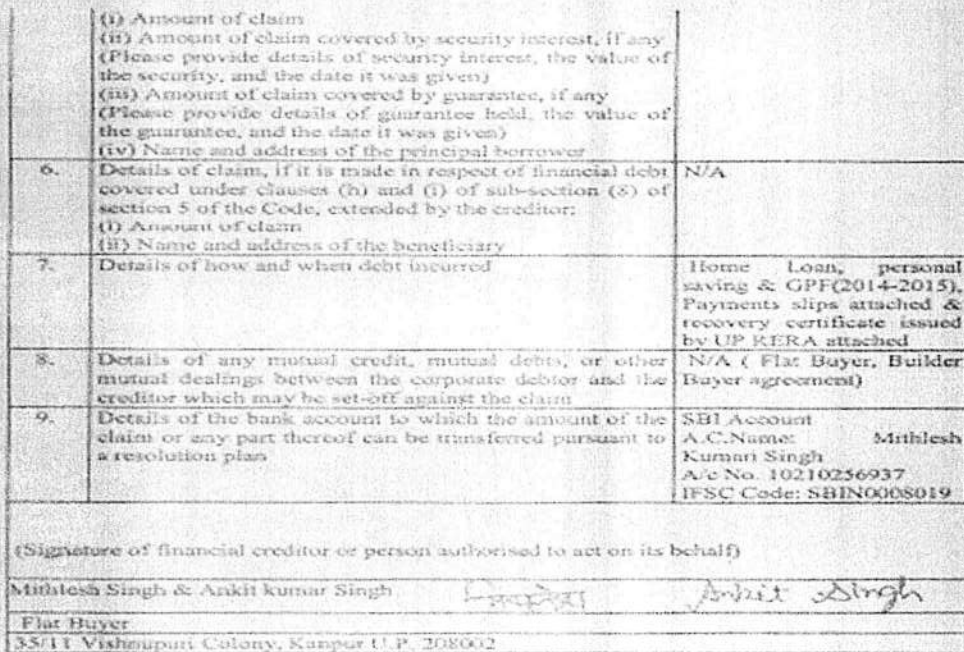 (i) Amount of claim
(ii) Amount of claim covered by security interest, if any
(Please provide details of security interest, the value of
the security, and the date it was given)
(iii) Amount of claim covered by guarantee, if any
(Please provide details of guarantee held, the value of
the guarantee, and the date it was given)
(iv) Name and address of the principal borrower
6. Details of claim, if it is made in respect of financial debt
covered under clauses (h) and (i) of sub-section (8) of
section 5 of the Code, extended by the creditor:
(i) Amount of claim
(ii) Name and address of the beneficiary
N/A
7. Details of how and when debt incurred
Home Loan, personal
saving & GPF(2014-2015),
Payments slips attached &
recovery certificate issued
by UP RERA attached
8. Details of any mutual credit, mutual debts, or other
mutual dealings between the corporate debtor and the
creditor which may be set-off against the claim
N/A ( Flat Buyer, Builder
Buyer agreement)
9. Details of the bank account to which the amount of the
claim or any part thereof can be transferred pursuant to
a resolution plan
SBI Account
A.C.Name: Mithlesh
Kumari Singh
A/c No. 10210256937
IFSC Code: SBIN0008019
(Signature of financial creditor or person authorised to act on its behalf)
Mithlesh Singh & Ankit kumar Singh
Ankit Singh
Flat Buyer
35/11 Vishnupuri Colony, Kanpur U.P. 208002